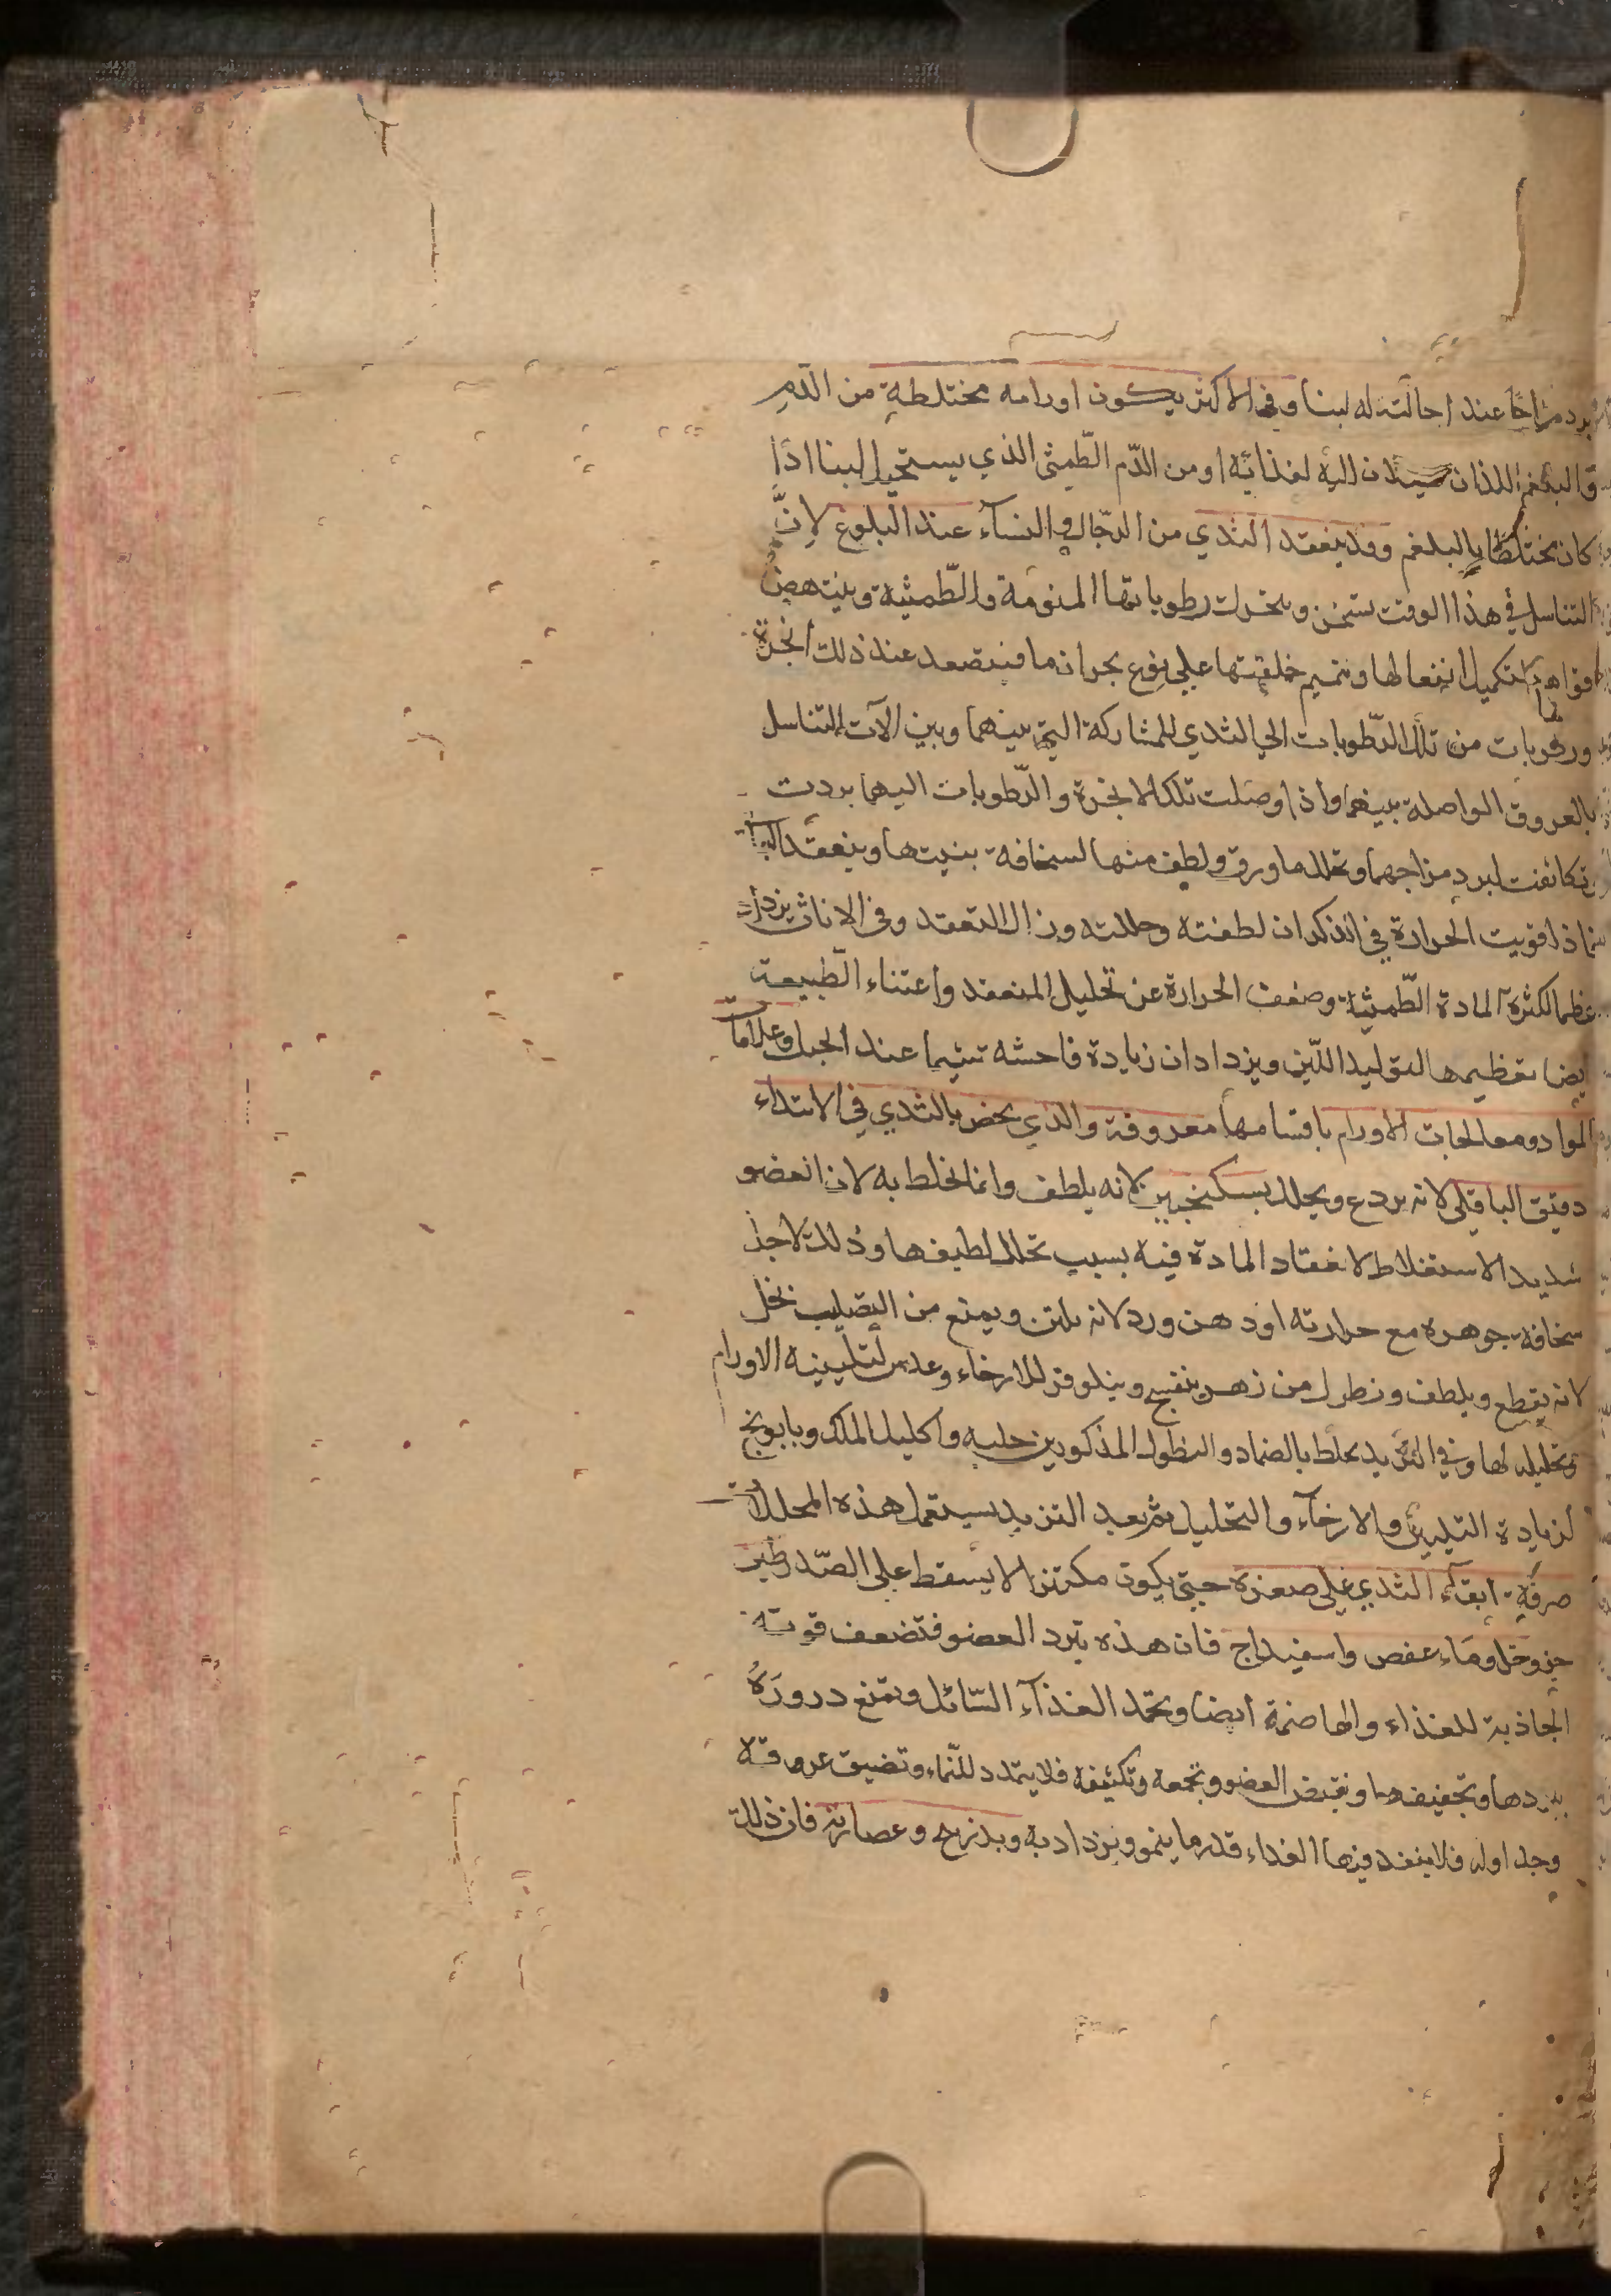 برد مزاجا عند احالته له لبنا وفي الاكثر يكون اورامه مختلطة من الدّم
والبلغم اللذان يسيلان اليه لغذائه او من الدّم الطّمثى الذي يستحيل لبنا اذا
كان مختلطا بالبلغم وقد ينعقد الثدي من الرّجال والنسآء عند البلوغ لانّ
التناسل في هذا الوقت يسخن ويتحرك رطوباتها المنويّة والطّمثية وينتهض
قواها لتكميل انفعالها وتتميم خلقتها على نوع بحران ما فيتصعد عند ذلك ابخرة
ورطوبات من تلك الرّطوبات الي الثدي للمشاركة التي بينهما وبين الآت التناسل
بالعروق الواصلة بينهما واذا وصلت تلك الابخرة والرّطوبات اليهما بردت
وتكاثفت لبرد مزاجهما وتحلل ما ورق ولطف منها لسخافة بنيتها وينعقد الباقي
ثم اذا قويت الحرارة في الذكران لطفته وحللته وزال التعقد وفي الاناث يزداد
عظما لكثرة المادة الطّمثية وضعف الحرارة عن تحليل المنعقد واعتناء الطّبيعة
ايضا بتعظيمها لتوليد اللّبن ويزدادان زيادة فاحشه سيّما عند الحبل وعلامات
المواد ومعالجات الاورام باقسامها معروفة والذي يخص بالثدي في الابتداء
دقيق الباقلي لانه يردع ويحلل بسكنجبين لانه يلطف وانما يخلط به لان العضو
شديد الاستغلاظ لانعقاد المادة فيه بسبب تحلل لطيفها وذلك لاجل
سخافة جوهره مع حرارته او دهن ورد لانه يلين ويمنع من التصليب بخل
لانه يقطع ويلطف ونطول من زهر بنفسج ونيلوفر للارخاء وعدس لتليينه الاورام
وتحليله لها وفي التزيد يخلط بالضماد والنطول المذكورين حلبه واكليل الملك وبابونج
لزيادة التليين والارخآء والتحليل ثم بعد التزيد يستعمل هذه المحللات
صرفة ابقآء الثدي على صغره حتى يكون مكتنزا لا يسقط على الصّدر طين
حر وخل وماء عفص واسفيداج فان هذه تبرد العضو فتضعف قوته
الجاذبة للغذاء والهاضمة ايضا وتجمد الغذآء السّائل وتمنع دروره
ببردها وتجفيفها وتقبض العضو وتجمعه وتكثفه فلا يتمدد للنّماء وتضيق عروقه
وجداوله فلا ينفذ فيها الغذاء قدر ما ينمو ويزداد به وبذر بنج وعصارته فان ذلك